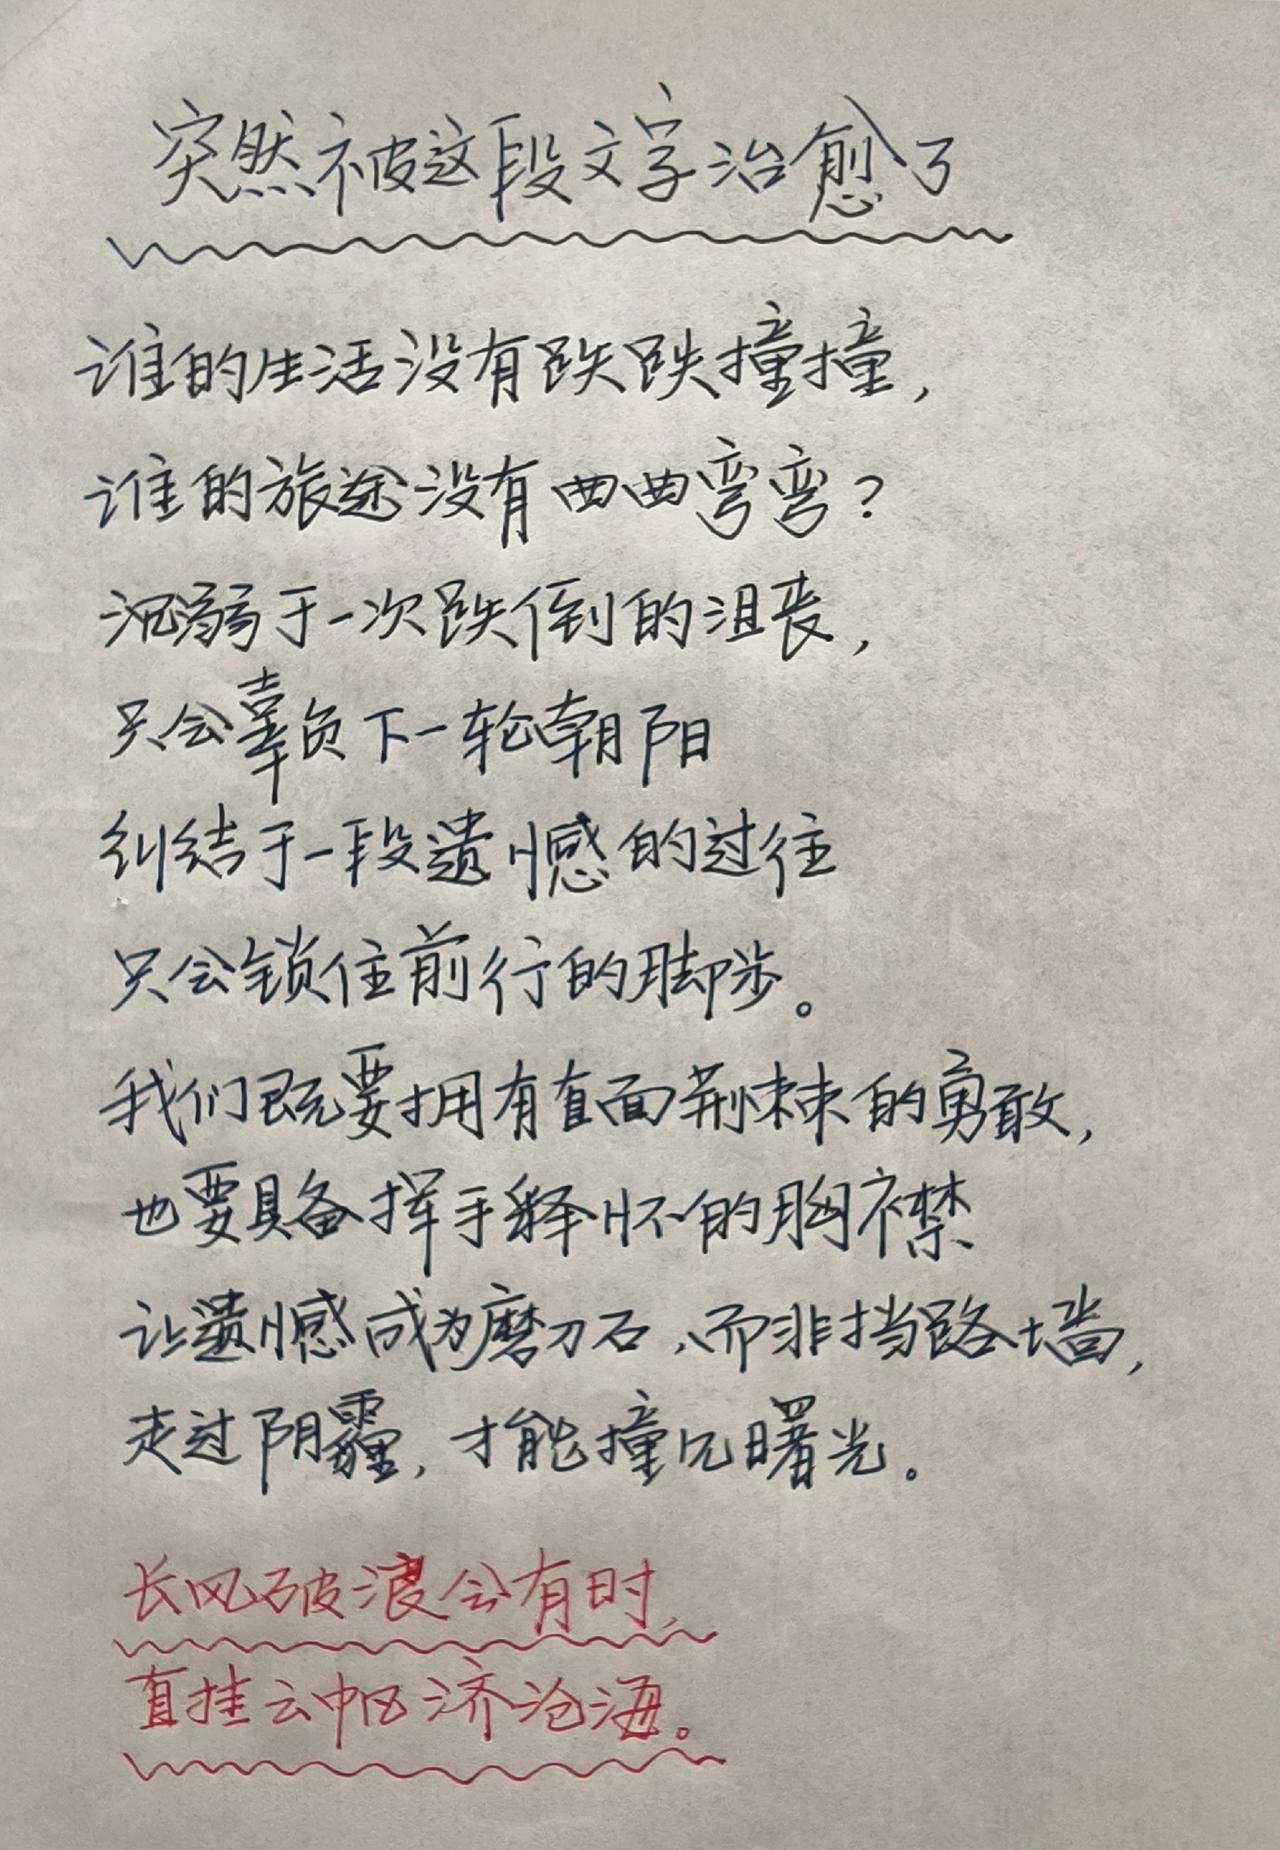 突然被这段文字治愈了
谁的生活没有跌跌撞撞，
谁的旅途没有曲曲弯弯？
沉溺于一次跌倒的沮丧，
只会辜负下一轮朝阳
纠结于一段遗憾的过往
只会锁住前行的脚步。
我们既要拥有直面荆棘的勇敢，
也要具备挥手释怀的胸襟
让遗憾成为磨刀石，而非挡路墙，
走过阴霾，才能撞见曙光。
长风破浪会有时，
直挂云帆济沧海。